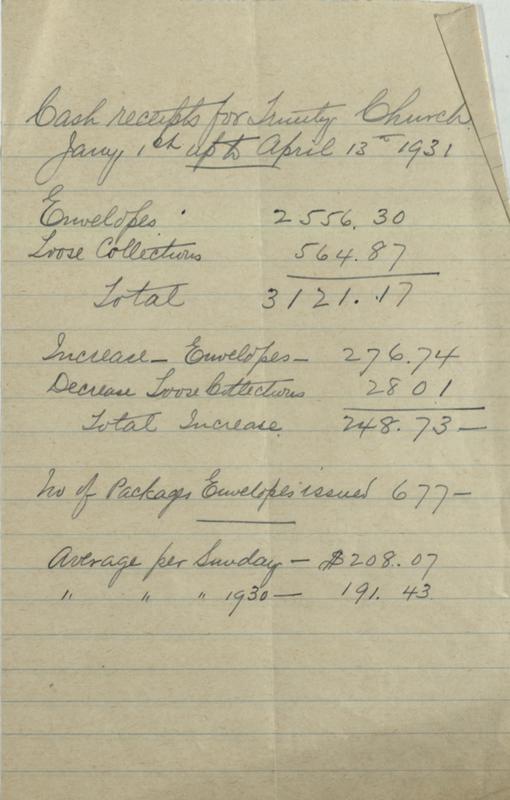 Cash receipts for Trinity Church
Jany, 1st up to April 13th 1931
Envelopes 2556.30
Loose Collections 564.87
Total 3121.17
Increase - Envelopes - 276.74
Decrease Loose Collections 28 01
Total Increase 248.73 -
No of Packages Envelopes issued 677 -
Average per Sunday - $208.07
" " " 1930 - 191.43